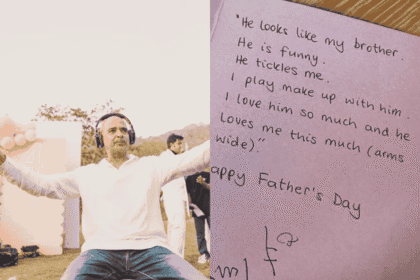 "He looks like my brother.
He is funny.
He tickles me.
I play make up with him.
I love him so much and he
loves me this much (arms
wide)."
appy Father's Day